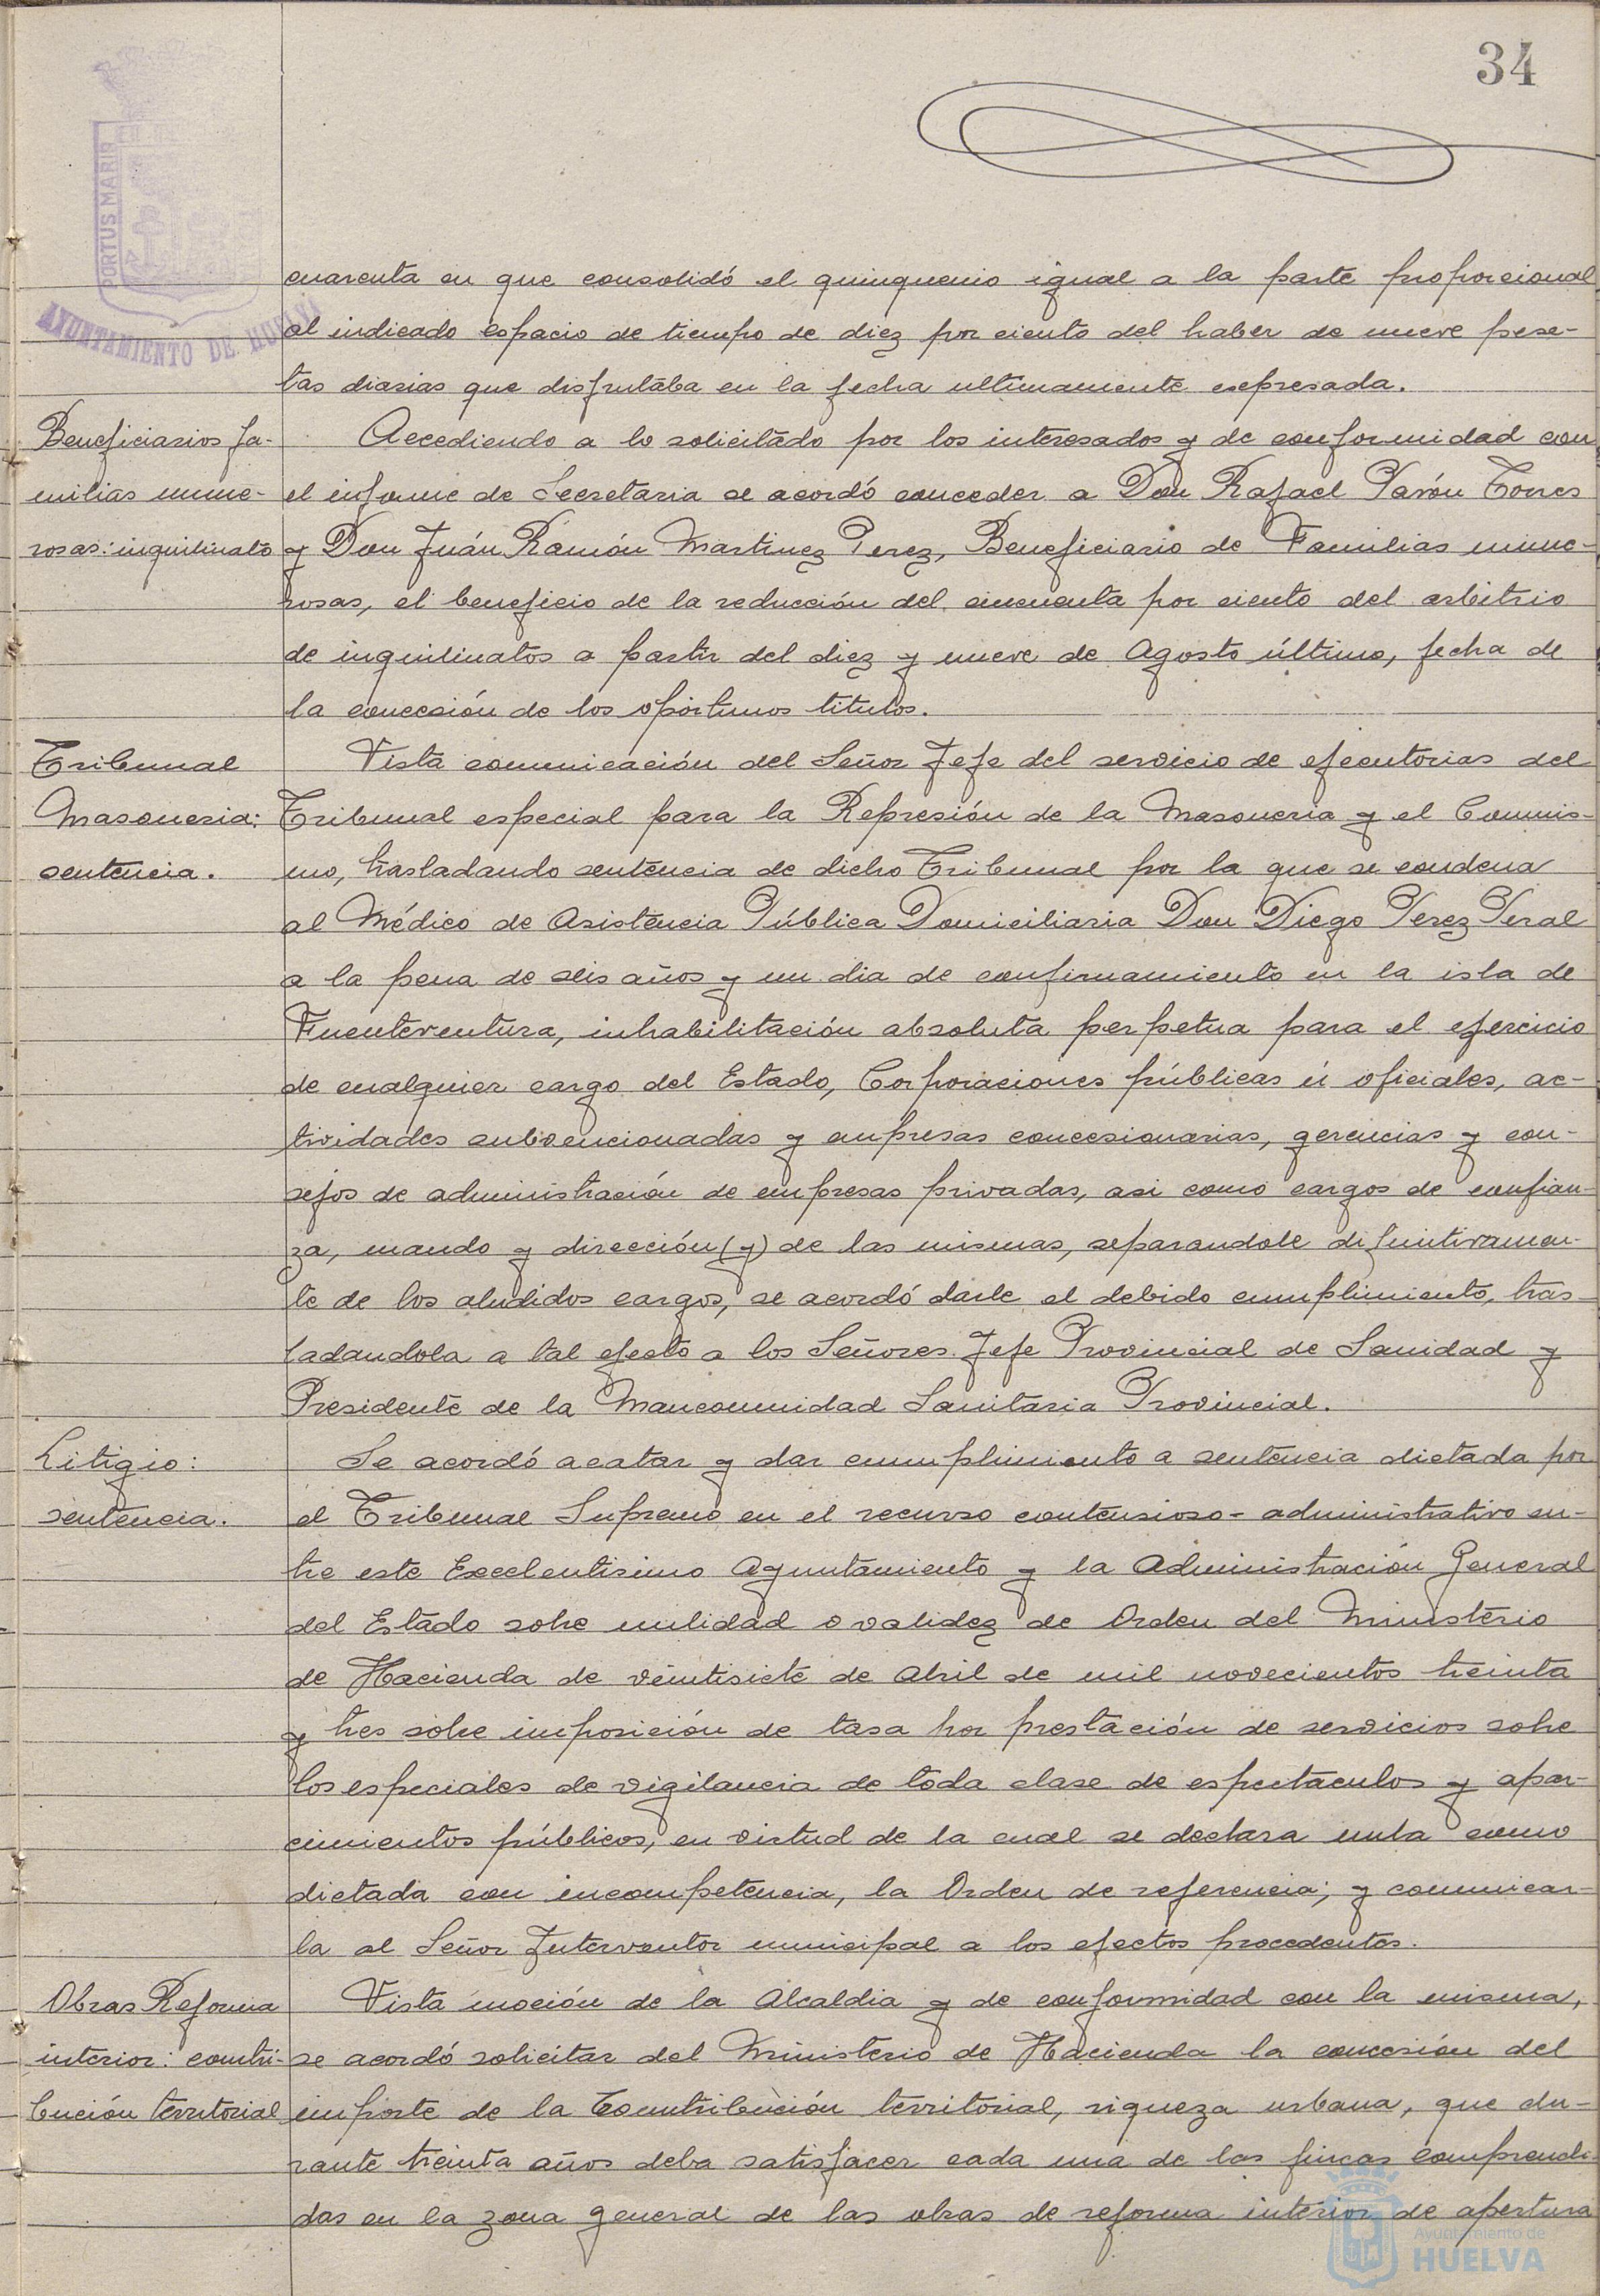 34
PORTUS MARIS
AYUNTAMIENTO DE HUELVA
cuarenta en que consolidó el quinquenio igual a la parte proporcional
al indicado espacio de tiempo de diez por ciento del haber de nueve pese-
tas diarias que disfrutaba en la fecha ultimamente expresada.
Beneficiarios fa-
milias nume-
rosas: inquilinato
Accediendo a lo solicitado por los interesados y de conformidad con
el informe de Secretaria se acordó conceder a Don Rafael Pavón Torres
y Don Juán Rámón Martinez Perez, Beneficiario de Familias nume-
rosas, el beneficio de la reducción del cincuenta por ciento del arbitrio
de inquilinatos a partir del diez y nueve de Agosto último, fecha de
la concesión de los oportunos titulos.
Tribunal
Masoneria:
sentencia.
Vista comunicación del Señor Jefe del servicio de ejecutorias del
Tribunal especial para la Represión de la Masoneria y el Comunis-
mo, trasladando sentencia de dicho Tribunal por la que se condena
al Médico de Asistencia Pública Domiciliaria Don Diego Perez Peral
a la pena de seis años y un dia de confinamiento en la isla de
Fuenteventura, inhabilitación absoluta perpetua para el ejercicio
de cualquier cargo del Estado, Corporaciones públicas ú oficiales, ac-
tividades subvencionadas y empresas concesionarias, gerencias y con-
sejos de administración de empresas privadas, asi como cargos de confian-
za, mando y dirección (y) de las mismas, separandole difinitivamen-
te de los aludidos cargos, se acordó darle el debido cumplimiento, tras-
ladandola a tal efecto a los Señores Jefe Provincial de Sanidad y
Presidente de la Mancomunidad Sanitaria Provincial.
Litigio:
sentencia.
Se acordó acatar y dar cumplimiento a sentencia dictada por
el Tribunal Supremo en el recurso contensioso-administrativo en-
tre este Excelentisimo Ayuntamiento y la Administración General
del Estado sobre nulidad o validez de Orden del Ministerio
de Hacienda de veintisiete de Abril de mil novecientos treinta
y tres sobre imposición de tasa por prestación de servicios sobre
los especiales de vigilancia de toda clase de espectaculos y apar-
cimientos públicos, en virtud de la cual se declara nula como
dictada con incompetencia, la Orden de referencia; y comunicar-
la al Señor Interventor municipal a los efectos procedentes.
Obras Reforma
interior: contri-
bución territorial
Vista moción de la Alcaldia y de conformidad con la misma,
se acordó solicitar del Ministerio de Hacienda la concesión del
importe de la Contribución territorial, riqueza urbana, que du-
rante treinta años deba satisfacer cada una de las fincas comprendi-
das en la zona general de las obras de reforma interior de apertura
Ayuntamiento de
HUELVA